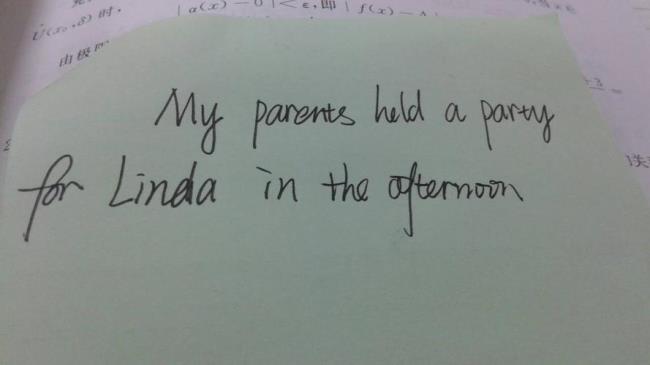 U(x₀,δ)时,
|α(x)-0|<ε,即|f(x)-A|
My parents held a party
for Linda in the afternoon